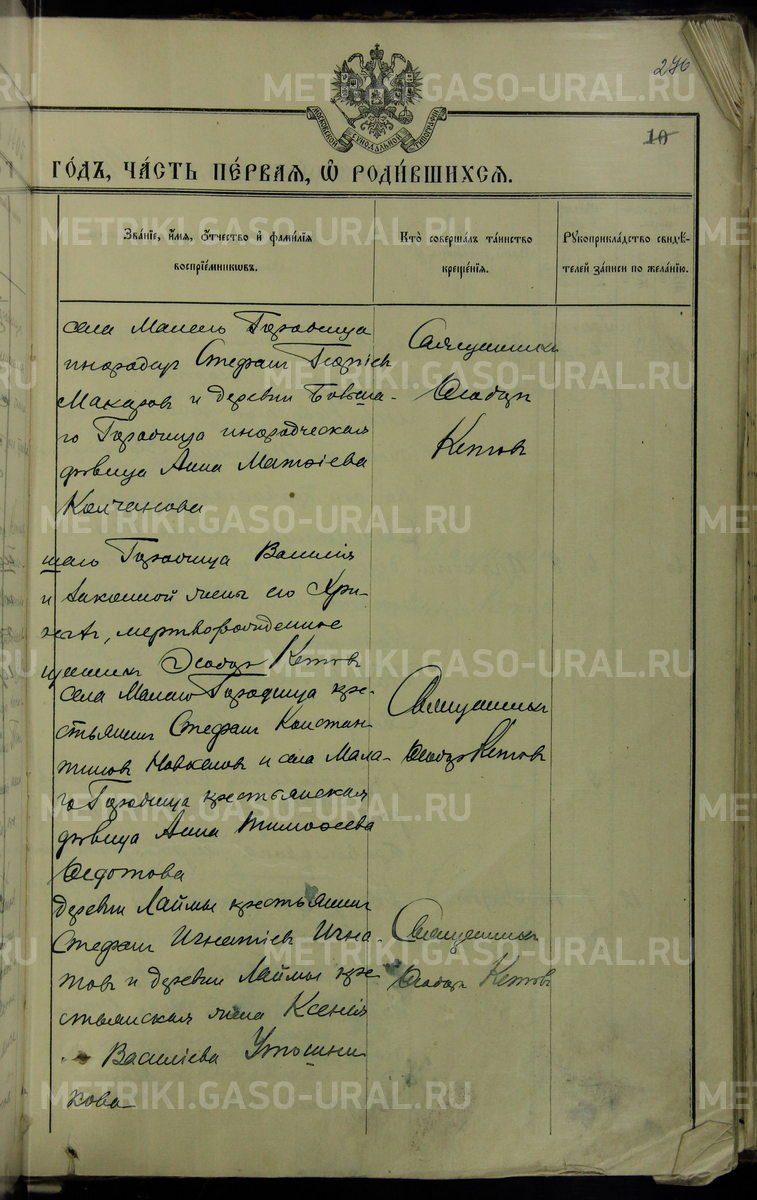 276
10
МОСКОВСКОЙ СѴНОДАЛЬНОЙ ТИПОГРАФІИ
ГО́ДЪ, ЧА́СТЬ ПЕ́РВАѦ, Ѽ РОДИ́ВШИХСѦ.
Зва́нїе, и҆́мѧ, ѻ҆́тчество и҆ фами́лїѧ
воспрїе́мникѡвъ.
Кто̀ соверша́лъ та́инство
креще́нїѧ.
Рꙋкоприкла́дство свидѣ́-
телей за́писи по жела́нїю.
села Малаго Городища
инородецъ Стефанъ Георгіев
Макаров и деревни Больша-
го Городища инородческая
дѣвица Анна Матѳіева
Колчанова
Священникъ
Ѳеодоръ
Кетовъ
шаго Городища Василія
и законной жены его Хри-
мертворожденное
щенникъ Ѳеодоръ Кетовъ
села Малаго Городища кре-
стьянин Стефанъ Констан-
тинов и села Мала-
го Городища крестьянская
дѣвица Анна Тимоѳеева
Ѳедотова
Священникъ
Ѳеодоръ Кетовъ
деревни Лаймы крестьянин
Стефанъ Игнатіев Игна-
товъ и деревни Лаймы кре-
стьянская жена Ксенія
Василіева
кова
Священникъ
Ѳеодоръ Кетовъ
METRIKI.GASO-URAL.RU